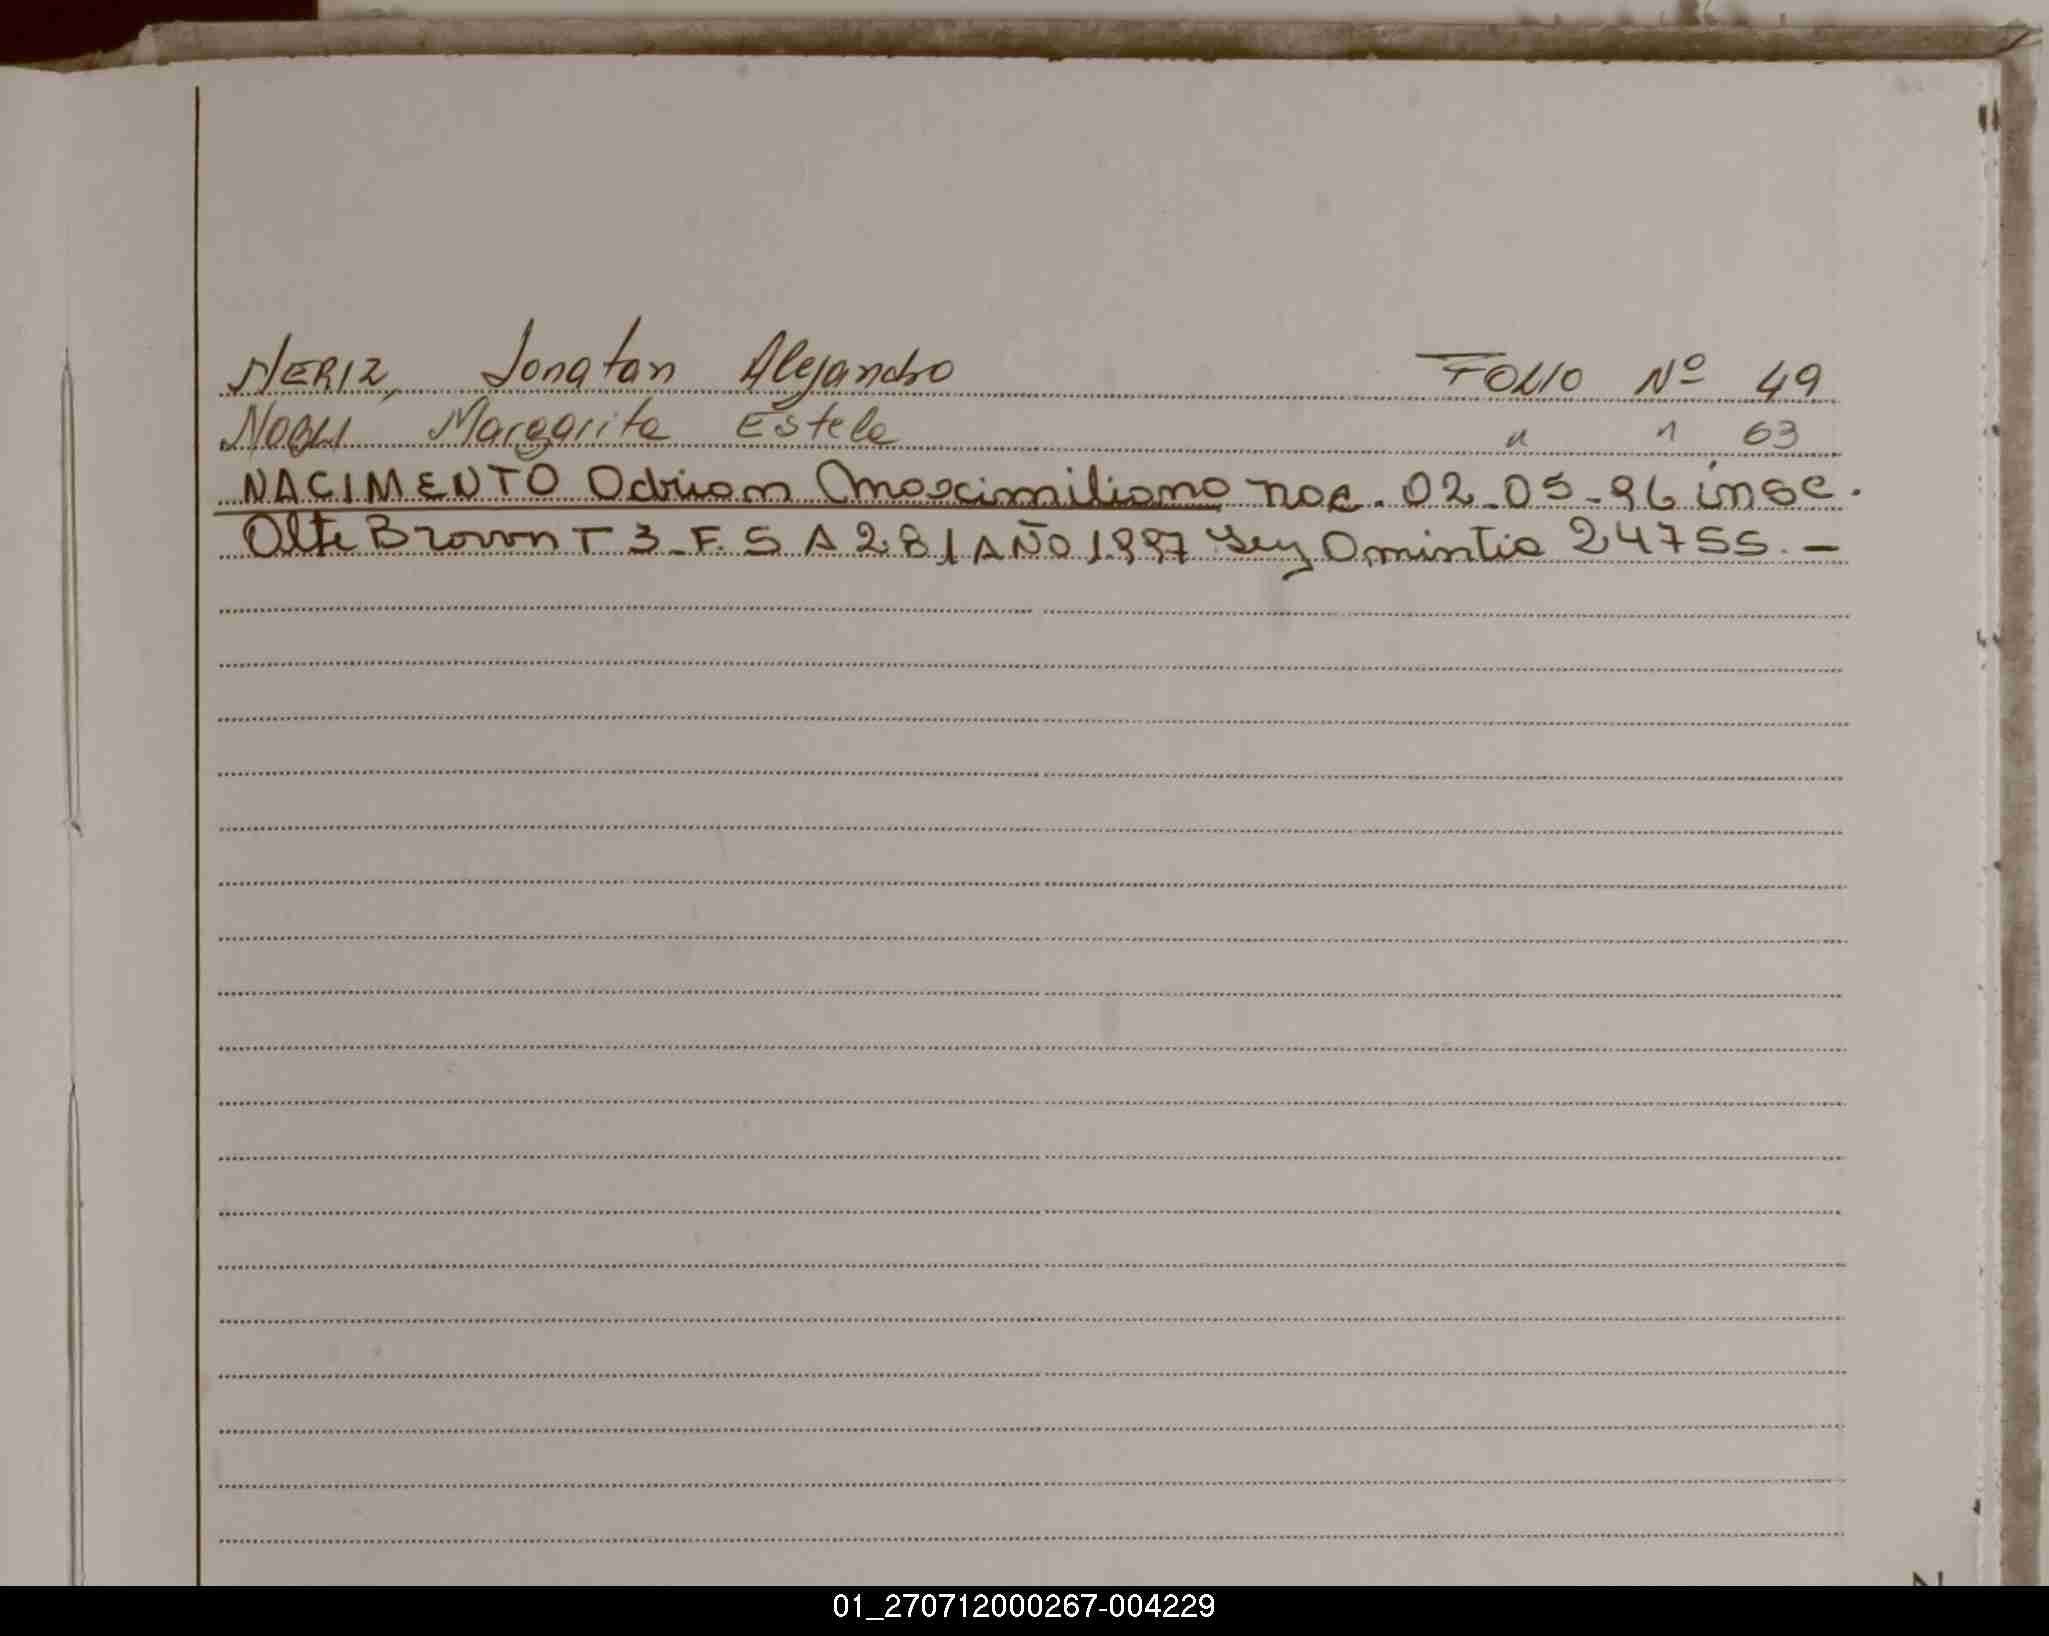 NERIZ, Jonatan Alejandro FOLIO Nº 49
Margarita Estela " " 63
NACIMENTO Adrian Maximiliano nac. 02-05-96 insc.
Alte Brown T 3-F. S A 281 AÑO 1997 Ley Amnistia 24755.-
01_270712000267-004229